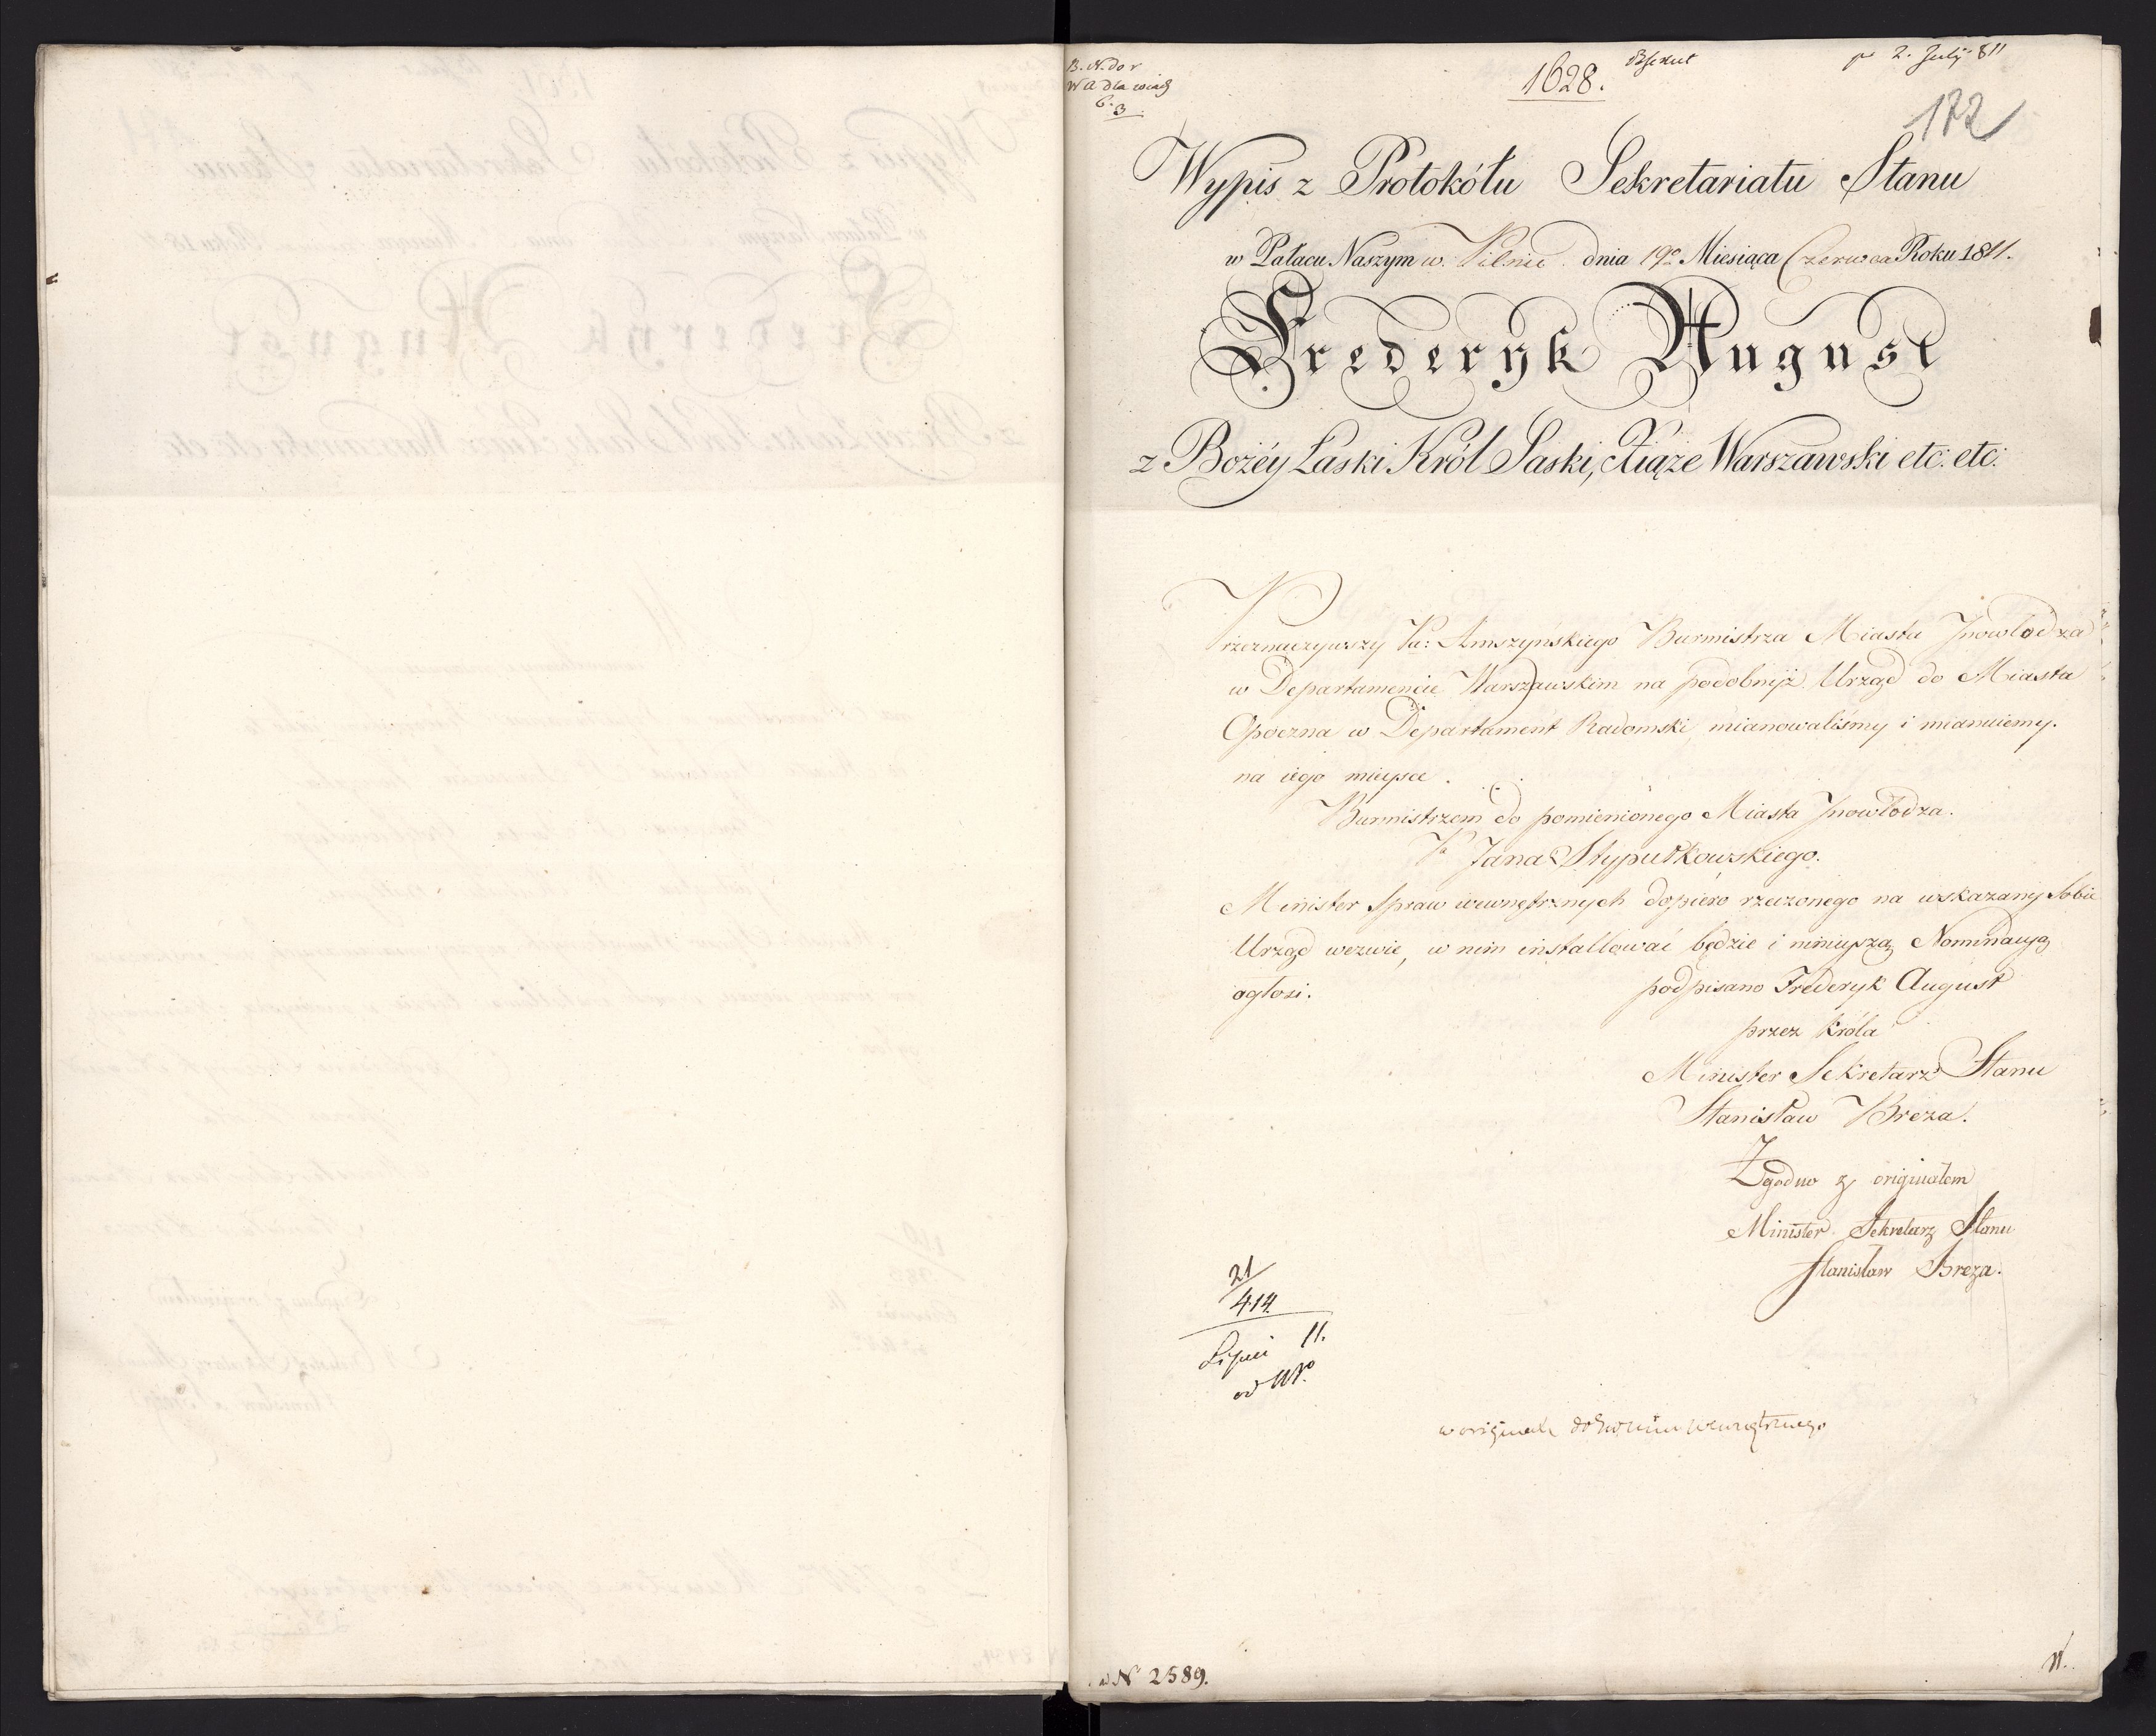 1628.
pr 2. July 811
172
Wypis z Protokółu Sekretariatu Stanu
w Pałacu Naszym w. Pilnic dnia 19º Miesiąca Czerwca Roku 1811.
Frederyk August
z Bożéy Łaski Król Saski, Xiąże Warszawski etc: etc:
Przeznaczywszy Pa: Amszyńskiego Burmistrza Miasta Jnowłodza
w Departamencie Warszawskim na podobnyż Urząd do Miasta
Opoczna w Departament Radomski, mianowaliśmy i mianuiemy.
na iego mieysce.
Burmistrzem do pomienionego Miasta Jnowłodza.
Pa Jana Stypułkowskiego.
Minister Spraw wewnętrznych dopiero rzeczonego na wskazany Sobie
Urząd wezwie, w nim installować będzie i ninieyszą Nominacyą
ogłosi.
podpisano Frederyk August
przez Króla
Minister Sekretarz Stanu
Stanisław Breza.
Zgodno z originałem
Minister Sekretarz Stanu
Stanisław Breza.
21
414
Lipca 11.
w originale do wewnętrznego
N 2589.